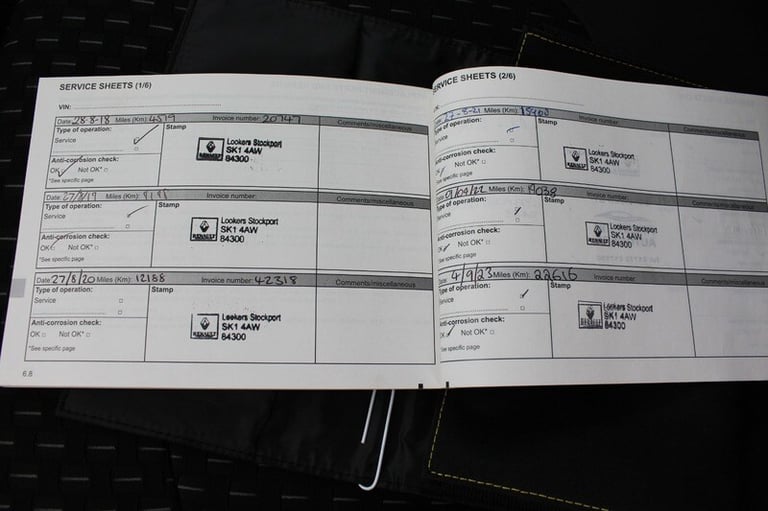 SERVICE SHEETS (1/6)
VIN:
Date: 28-8-18 Miles (Km): 4579 Invoice number: 20747 Comments/miscellaneous
Type of operation:
Service
Stamp
Anti-corrosion check:
OK Not OK*
*See specific page
RENAULT
Lookers Stockport
SK1 4AW
84300
Date: 27/8/19 Miles (Km): Invoice number: Comments/miscellaneous
Type of operation:
Service
Stamp
Anti-corrosion check:
OK Not OK*
*See specific page
Lookers Stockport
SK1 4AW
84300
Date: 27/8/20 Miles (Km): 12188 Invoice number: 42318 Comments/miscellaneous
Type of operation:
Service
Stamp
Anti-corrosion check:
OK Not OK*
*See specific page
RENAULT
Lookers Stockport
SK1 4AW
84300
6.8
SERVICE SHEETS (2/6)
VIN:
Date: 27-8-21 Miles (Km): Invoice number: Comments/miscellaneous
Type of operation:
Service
Stamp
Anti-corrosion check:
Not OK*
*See specific page
Lookers Stockport
SK1 4AW
84300
Miles (Km): 19038 Invoice number: Comments/miscellaneous
Type of operation:
Service
Stamp
Anti-corrosion check:
OK Not OK*
*See specific page
Lookers Stockport
SK1 4AW
84300
Date: 4/9/23 Miles (Km): 22616 Invoice number: Comments/miscellaneous
Type of operation:
Service
Stamp
Anti-corrosion check:
OK Not OK*
*See specific page
Lookers Stockport
SK1 4AW
84300